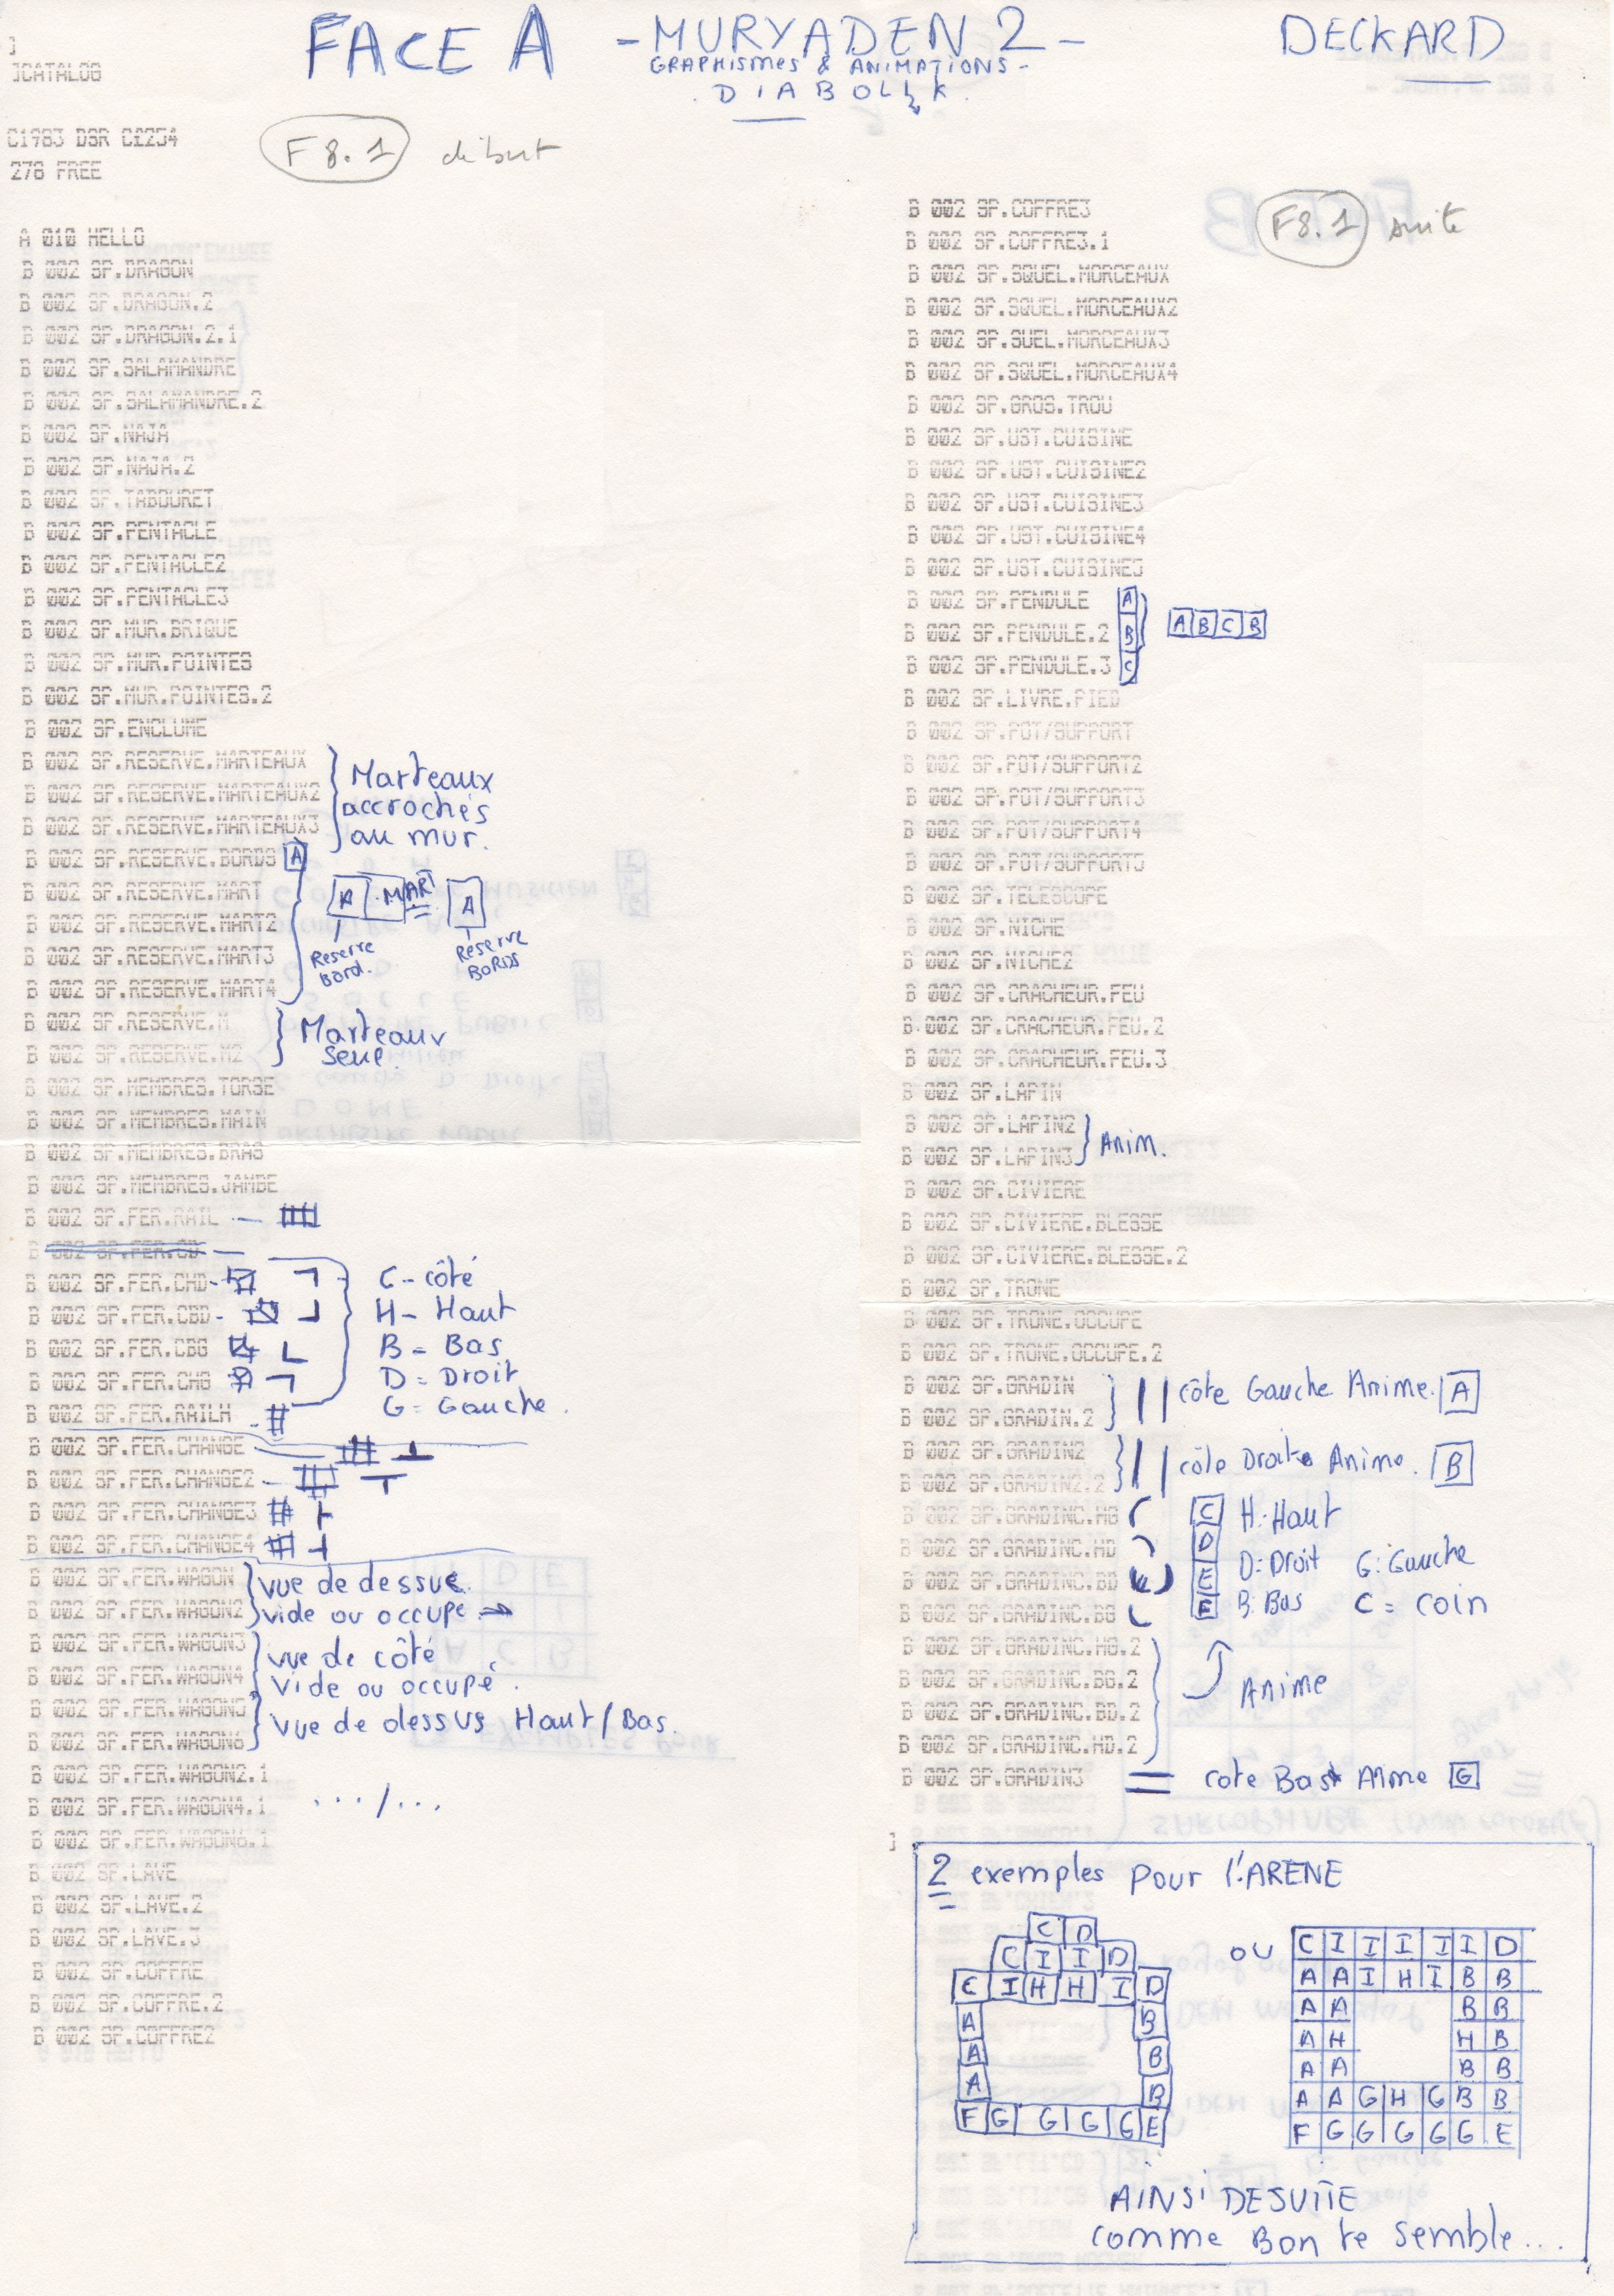 FACE A - MURYADEN 2 - DECKARD
GRAPHISMES & ANIMATIONS -
DIABOLIK
]
]CATALOG
C1983 DSR C#254
278 FREE
F8.1 début
A 010 HELLO
B 002 SP.DRAGON
B 002 SP.DRAGON.2
B 002 SP.DRAGON.2.1
B 002 SP.SALAMANDRE
B 002 SP.SALAMANDRE.2
B 002 SP.NAJA
B 002 SP.NAJA.2
B 002 SP.TABOURET
B 002 SP.PENTACLE
B 002 SP.PENTACLE2
B 002 SP.PENTACLE3
B 002 SP.MUR.BRIQUE
B 002 SP.MUR.POINTES
B 002 SP.MUR.POINTES.2
B 002 SP.ENCLUME
B 002 SP.RESERVE.MARTEAUX
B 002 SP.RESERVE.MARTEAUX2
B 002 SP.RESERVE.MARTEAUX3
Marteaux
accrochés
au mur.
B 002 SP.RESERVE.BORDS A
B 002 SP.RESERVE.MART
B 002 SP.RESERVE.MART2
B 002 SP.RESERVE.MART3
B 002 SP.RESERVE.MART4
A MART A
Reserve
Bord.
Reserve
BORDS
B 002 SP.RESERVE.M
B 002 SP.RESERVE.M2
Marteaux
seul.
B 002 SP.MEMBRES.TORSE
B 002 SP.MEMBRES.MAIN
B 002 SP.MEMBRES.BRAS
B 002 SP.MEMBRES.JAMBE
B 002 SP.FER.RAIL
B 002 SP.FER.CD
B 002 SP.FER.CHD
B 002 SP.FER.CBD
B 002 SP.FER.CBG
B 002 SP.FER.CHG
B 002 SP.FER.RAILH
C - côté
H - Haut
B = Bas
D = Droit
G = Gauche.
B 002 SP.FER.CHANGE
B 002 SP.FER.CHANGE2
B 002 SP.FER.CHANGE3
B 002 SP.FER.CHANGE4
B 002 SP.FER.WAGON
B 002 SP.FER.WAGON2
vue de dessus.
vide ou occupe
B 002 SP.FER.WAGON3
B 002 SP.FER.WAGON4
vue de côté
vide ou occupé.
B 002 SP.FER.WAGON5
B 002 SP.FER.WAGON6
vue de dessus Haut/Bas.
B 002 SP.FER.WAGON2.1
B 002 SP.FER.WAGON4.1
.../...
B 002 SP.FER.WAGON6.1
B 002 SP.LAVE
B 002 SP.LAVE.2
B 002 SP.LAVE.3
B 002 SP.COFFRE
B 002 SP.COFFRE.2
B 002 SP.COFFRE2
F8.1 suite
B 002 SP.COFFRE3
B 002 SP.COFFRE3.1
B 002 SP.SQUEL.MORCEAUX
B 002 SP.SQUEL.MORCEAUX2
B 002 SP.SUEL.MORCEAUX3
B 002 SP.SQUEL.MORCEAUX4
B 002 SP.GROS.TROU
B 002 SP.UST.CUISINE
B 002 SP.UST.CUISINE2
B 002 SP.UST.CUISINE3
B 002 SP.UST.CUISINE4
B 002 SP.UST.CUISINE5
B 002 SP.PENDULE A
B 002 SP.PENDULE.2 B
B 002 SP.PENDULE.3 C
A B C B
B 002 SP.LIVRE.PIED
B 002 SP.POT/SUPPORT
B 002 SP.POT/SUPPORT2
B 002 SP.POT/SUPPORT3
B 002 SP.POT/SUPPORT4
B 002 SP.POT/SUPPORT5
B 002 SP.TELESCOPE
B 002 SP.NICHE
B 002 SP.NICHE2
B 002 SP.CRACHEUR.FEU
B 002 SP.CRACHEUR.FEU.2
B 002 SP.CRACHEUR.FEU.3
B 002 SP.LAPIN
B 002 SP.LAPIN2
B 002 SP.LAPIN3
Anim.
B 002 SP.CIVIERE
B 002 SP.CIVIERE.BLESSE
B 002 SP.CIVIERE.BLESSE.2
B 002 SP.TRONE
B 002 SP.TRONE.OCCUPE
B 002 SP.TRONE.OCCUPE.2
B 002 SP.GRADIN
B 002 SP.GRADIN.2
côte Gauche Anime. A
B 002 SP.GRADIN2
B 002 SP.GRADIN2.2
côte Droite Anime. B
B 002 SP.GRADINC.HG C
B 002 SP.GRADINC.HD D
B 002 SP.GRADINC.BD E
B 002 SP.GRADINC.BG F
H: Haut
D: Droit G: Gauche
B: Bas C = coin
B 002 SP.GRADINC.HG.2
B 002 SP.GRADINC.BG.2
B 002 SP.GRADINC.BD.2
B 002 SP.GRADINC.HD.2
Anime
B 002 SP.GRADIN3 cote Bas Anime G
]
2 exemples pour l'ARENE
C D
C I I D
C I H H I D
A B
A B
A B
F G G G G E
OU
C I I I I I D
A A I H I B B
A A B B
A H H B
A A B B
A A G H G B B
F G G G G G E
AINSI DE SUITE
comme Bon te semble...